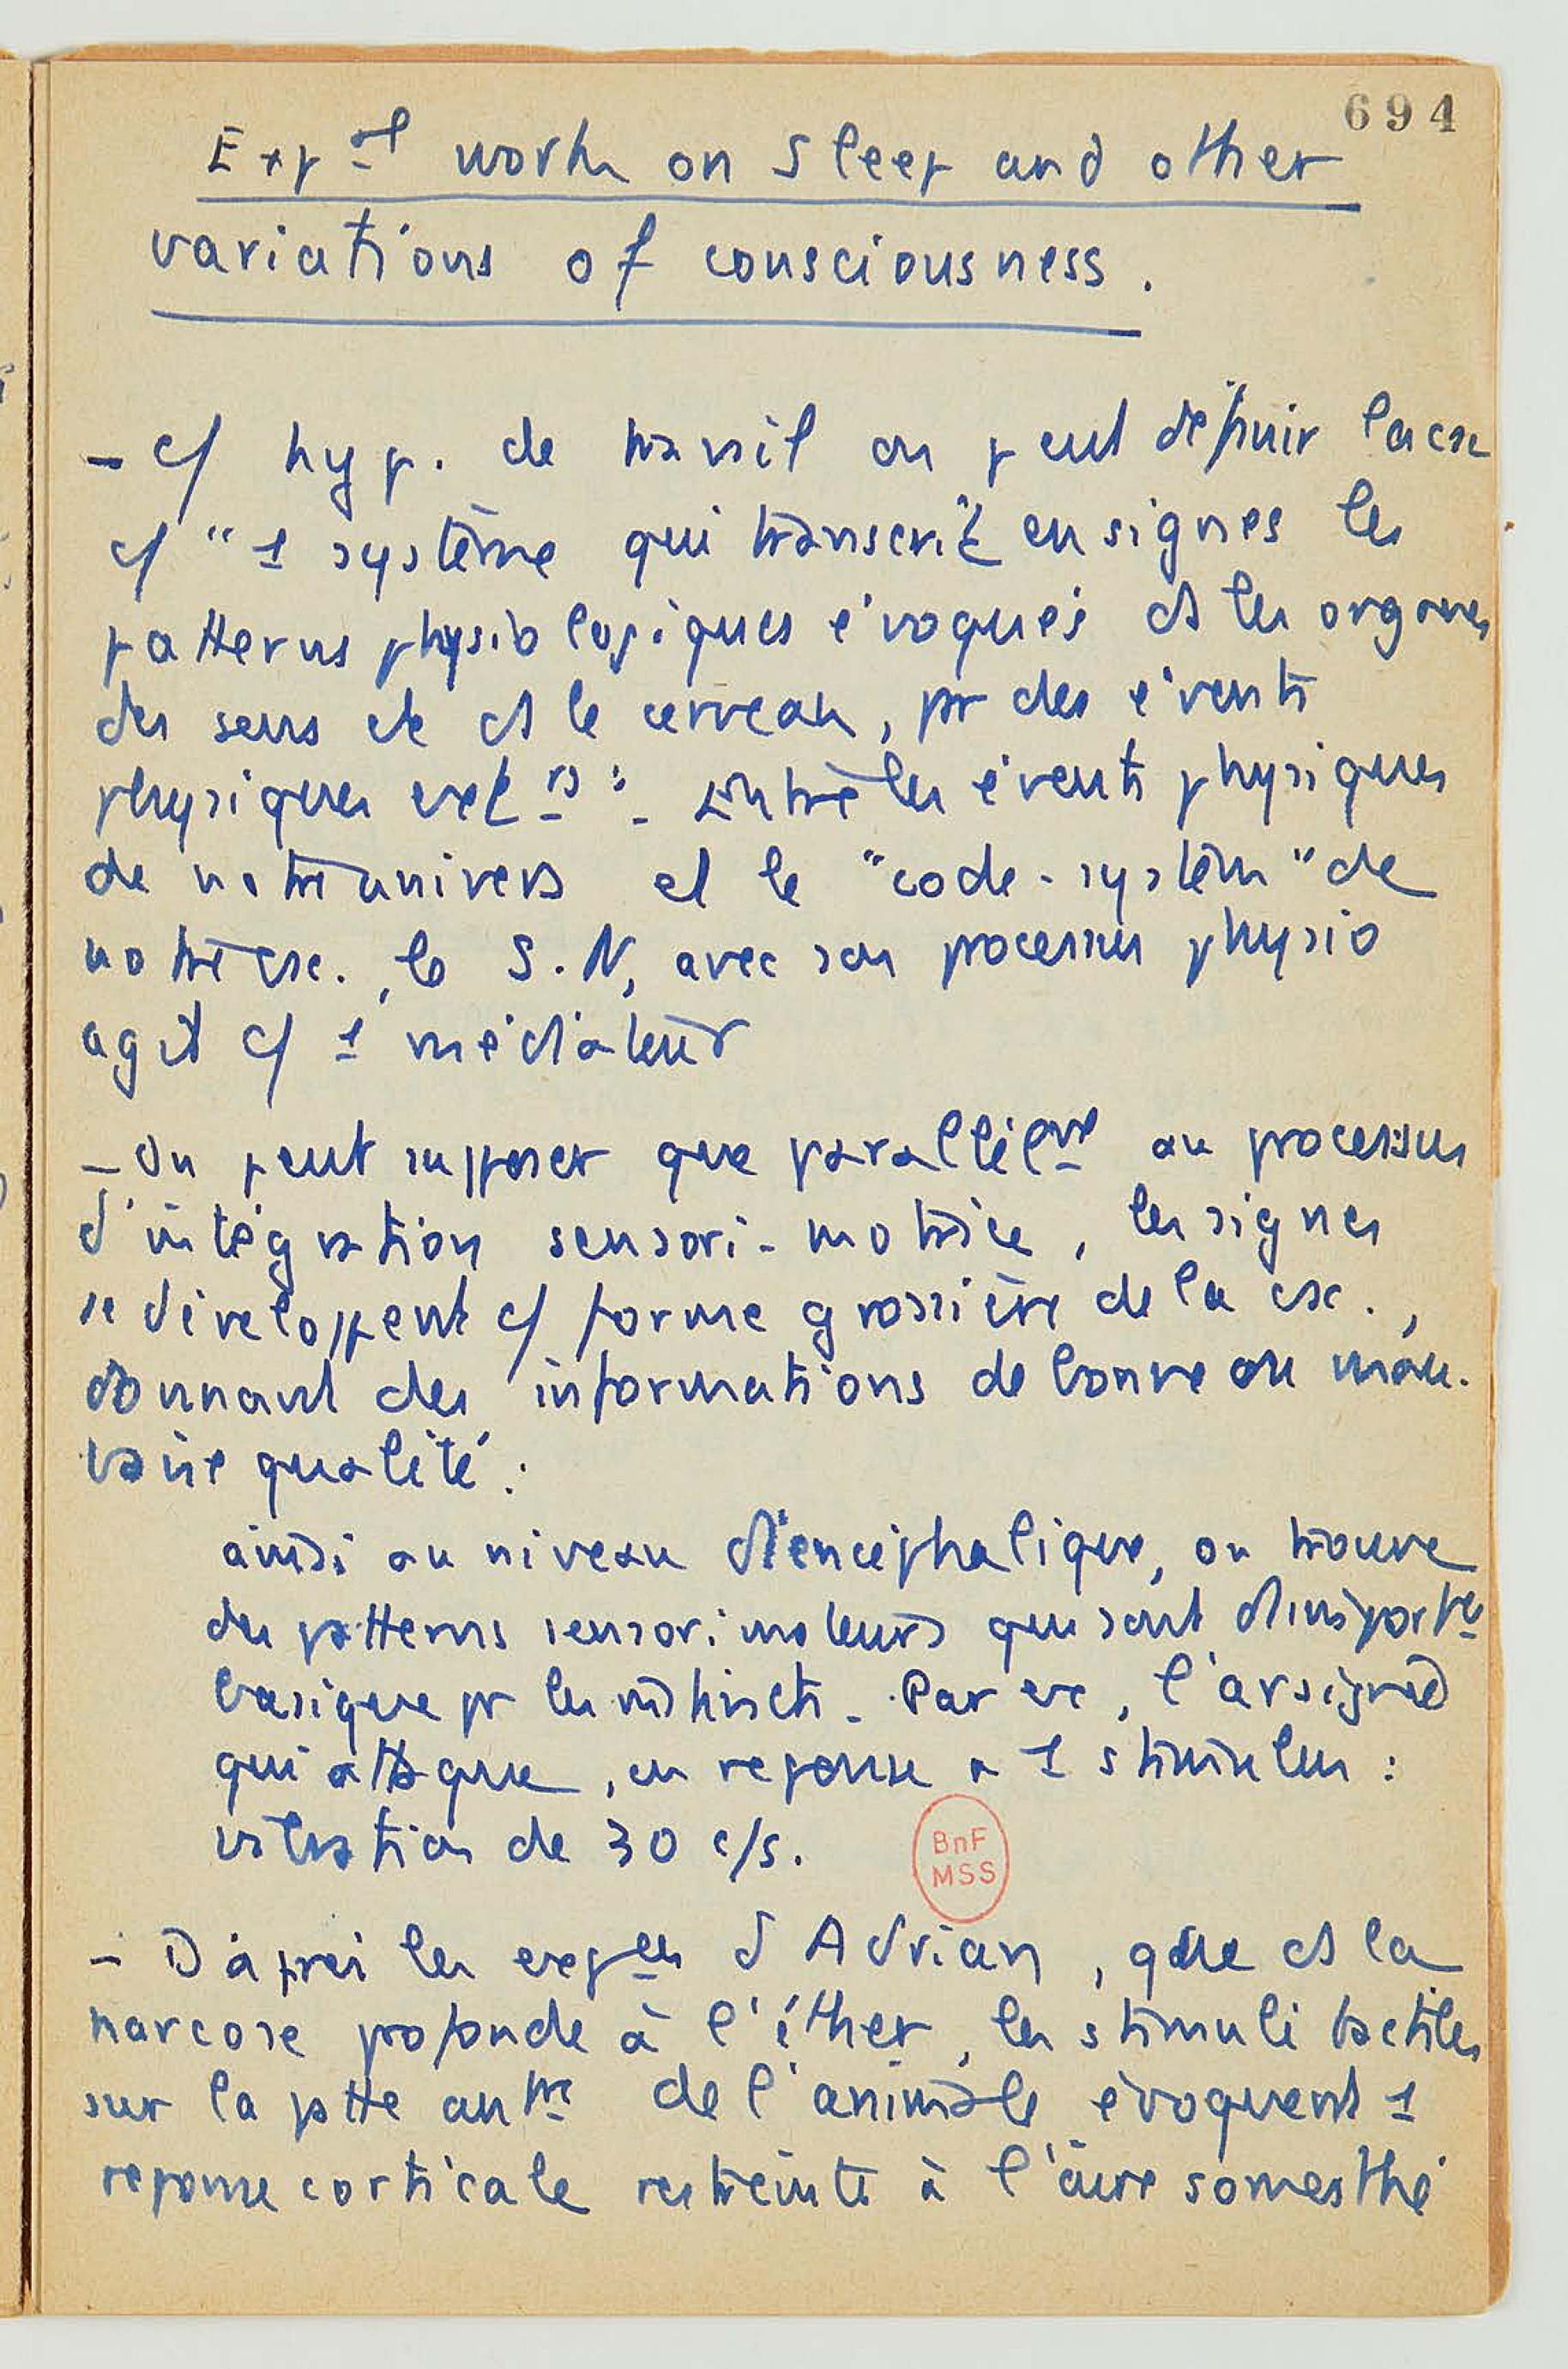 694
Exp al work on sleep and other
variations of consciousness.
- c/ hyp. de travail on peut définir la csc
c/ "1 système qui transcrit en signes les
patterns physiologiques évoqués ds les organes
des sens et ds le cerveau, pr des évents
physiques ext rs". Entre les évents physiques
de notre univers et le "code-système" de
notre csc., le S.N, avec son processus physio
agit c/ 1 médiateur
- On peut supposer que parallèlemt au processus
d'intégration sensori-motrice, les signes
se développent c/ forme grossière de la csc.,
donnant des informations de bonne ou mau-
vaise qualité :
ainsi au niveau diencéphalique, on trouve
des patterns sensorimoteurs qui sont d'import ce
basique pr les instincts. Par ex, l'araignée
qui attaque, en reponse a 1 stimulus :
vibration de 30 c/s.
- D'après les exp ces d'Adrian, que ds la
narcose profonde à l'éther, les stimuli tactiles
sur la patte ant re de l'animale évoquent 1
reponse corticale restreinte à l'aire somesthé
BnF
MSS